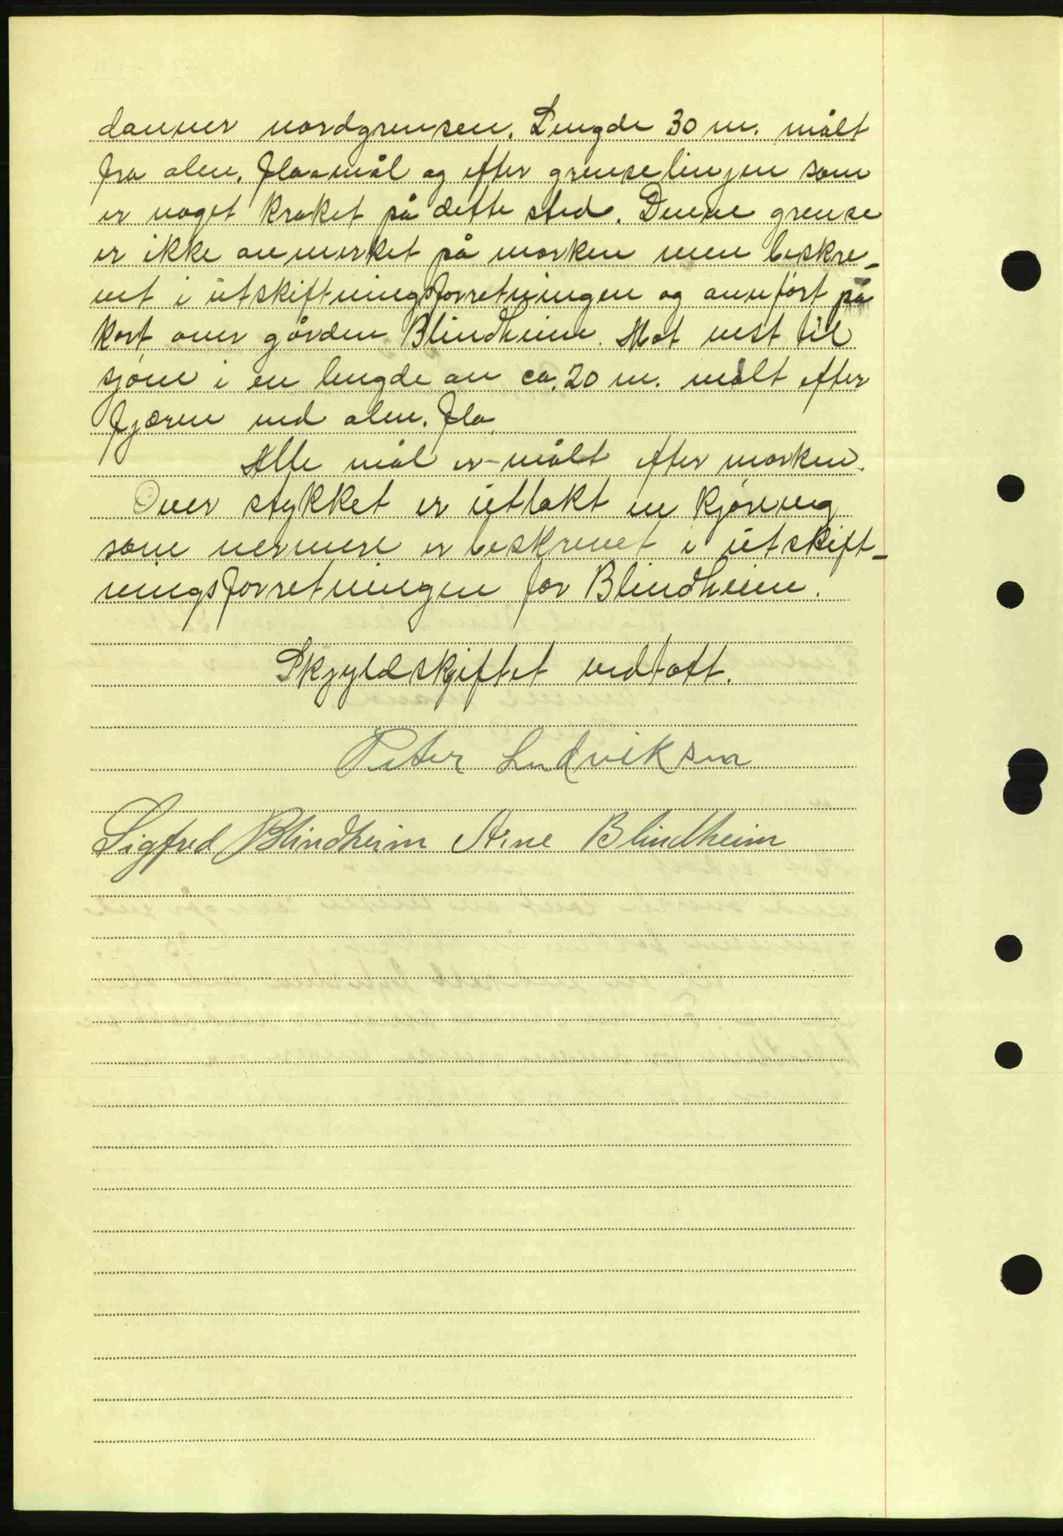 danner nordgrensen. Lengde 30 m. målt
fra alm. flomål og efter grenselinjen som
er noget kroket på dette sted. Denne grense
er ikke anmerket på marken men beskre-
vet i utskiftningsforretningen og annført på
kort over gården Blindheim. Mot vest til
sjøen i en lengde av ca. 20 m. målt efter
fjæren ved alm. flo.
Alle mål er målt efter marken.
Over stykket er utlakt en kjørveg
som nermere er beskrevet i utskift-
ningsforretningen for Blindheim.
Skyldskiftet vedtatt.
Peter Ludviksen
Sigfred Blindheim Arne Blindheim